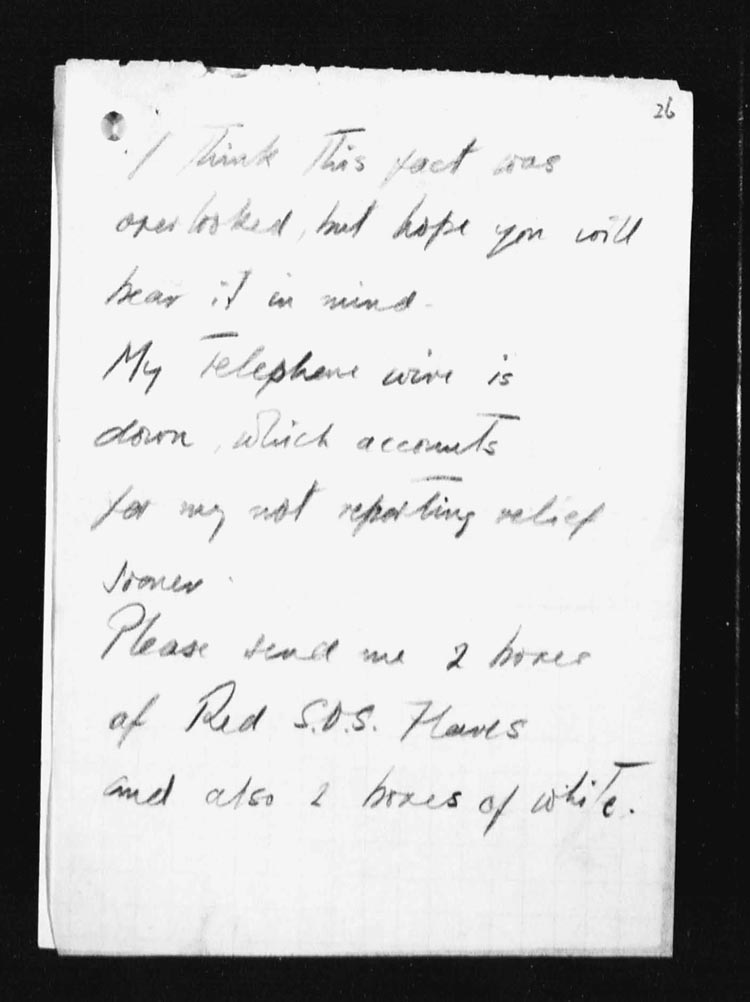 26
I think this fact was
overlooked, but hope you will
bear it in mind -
My Telephone wire is
down, which accounts
for my not reporting relief
sooner.
Please send me 2 boxes
of Red S.O.S. Flares
and also 2 boxes of white.